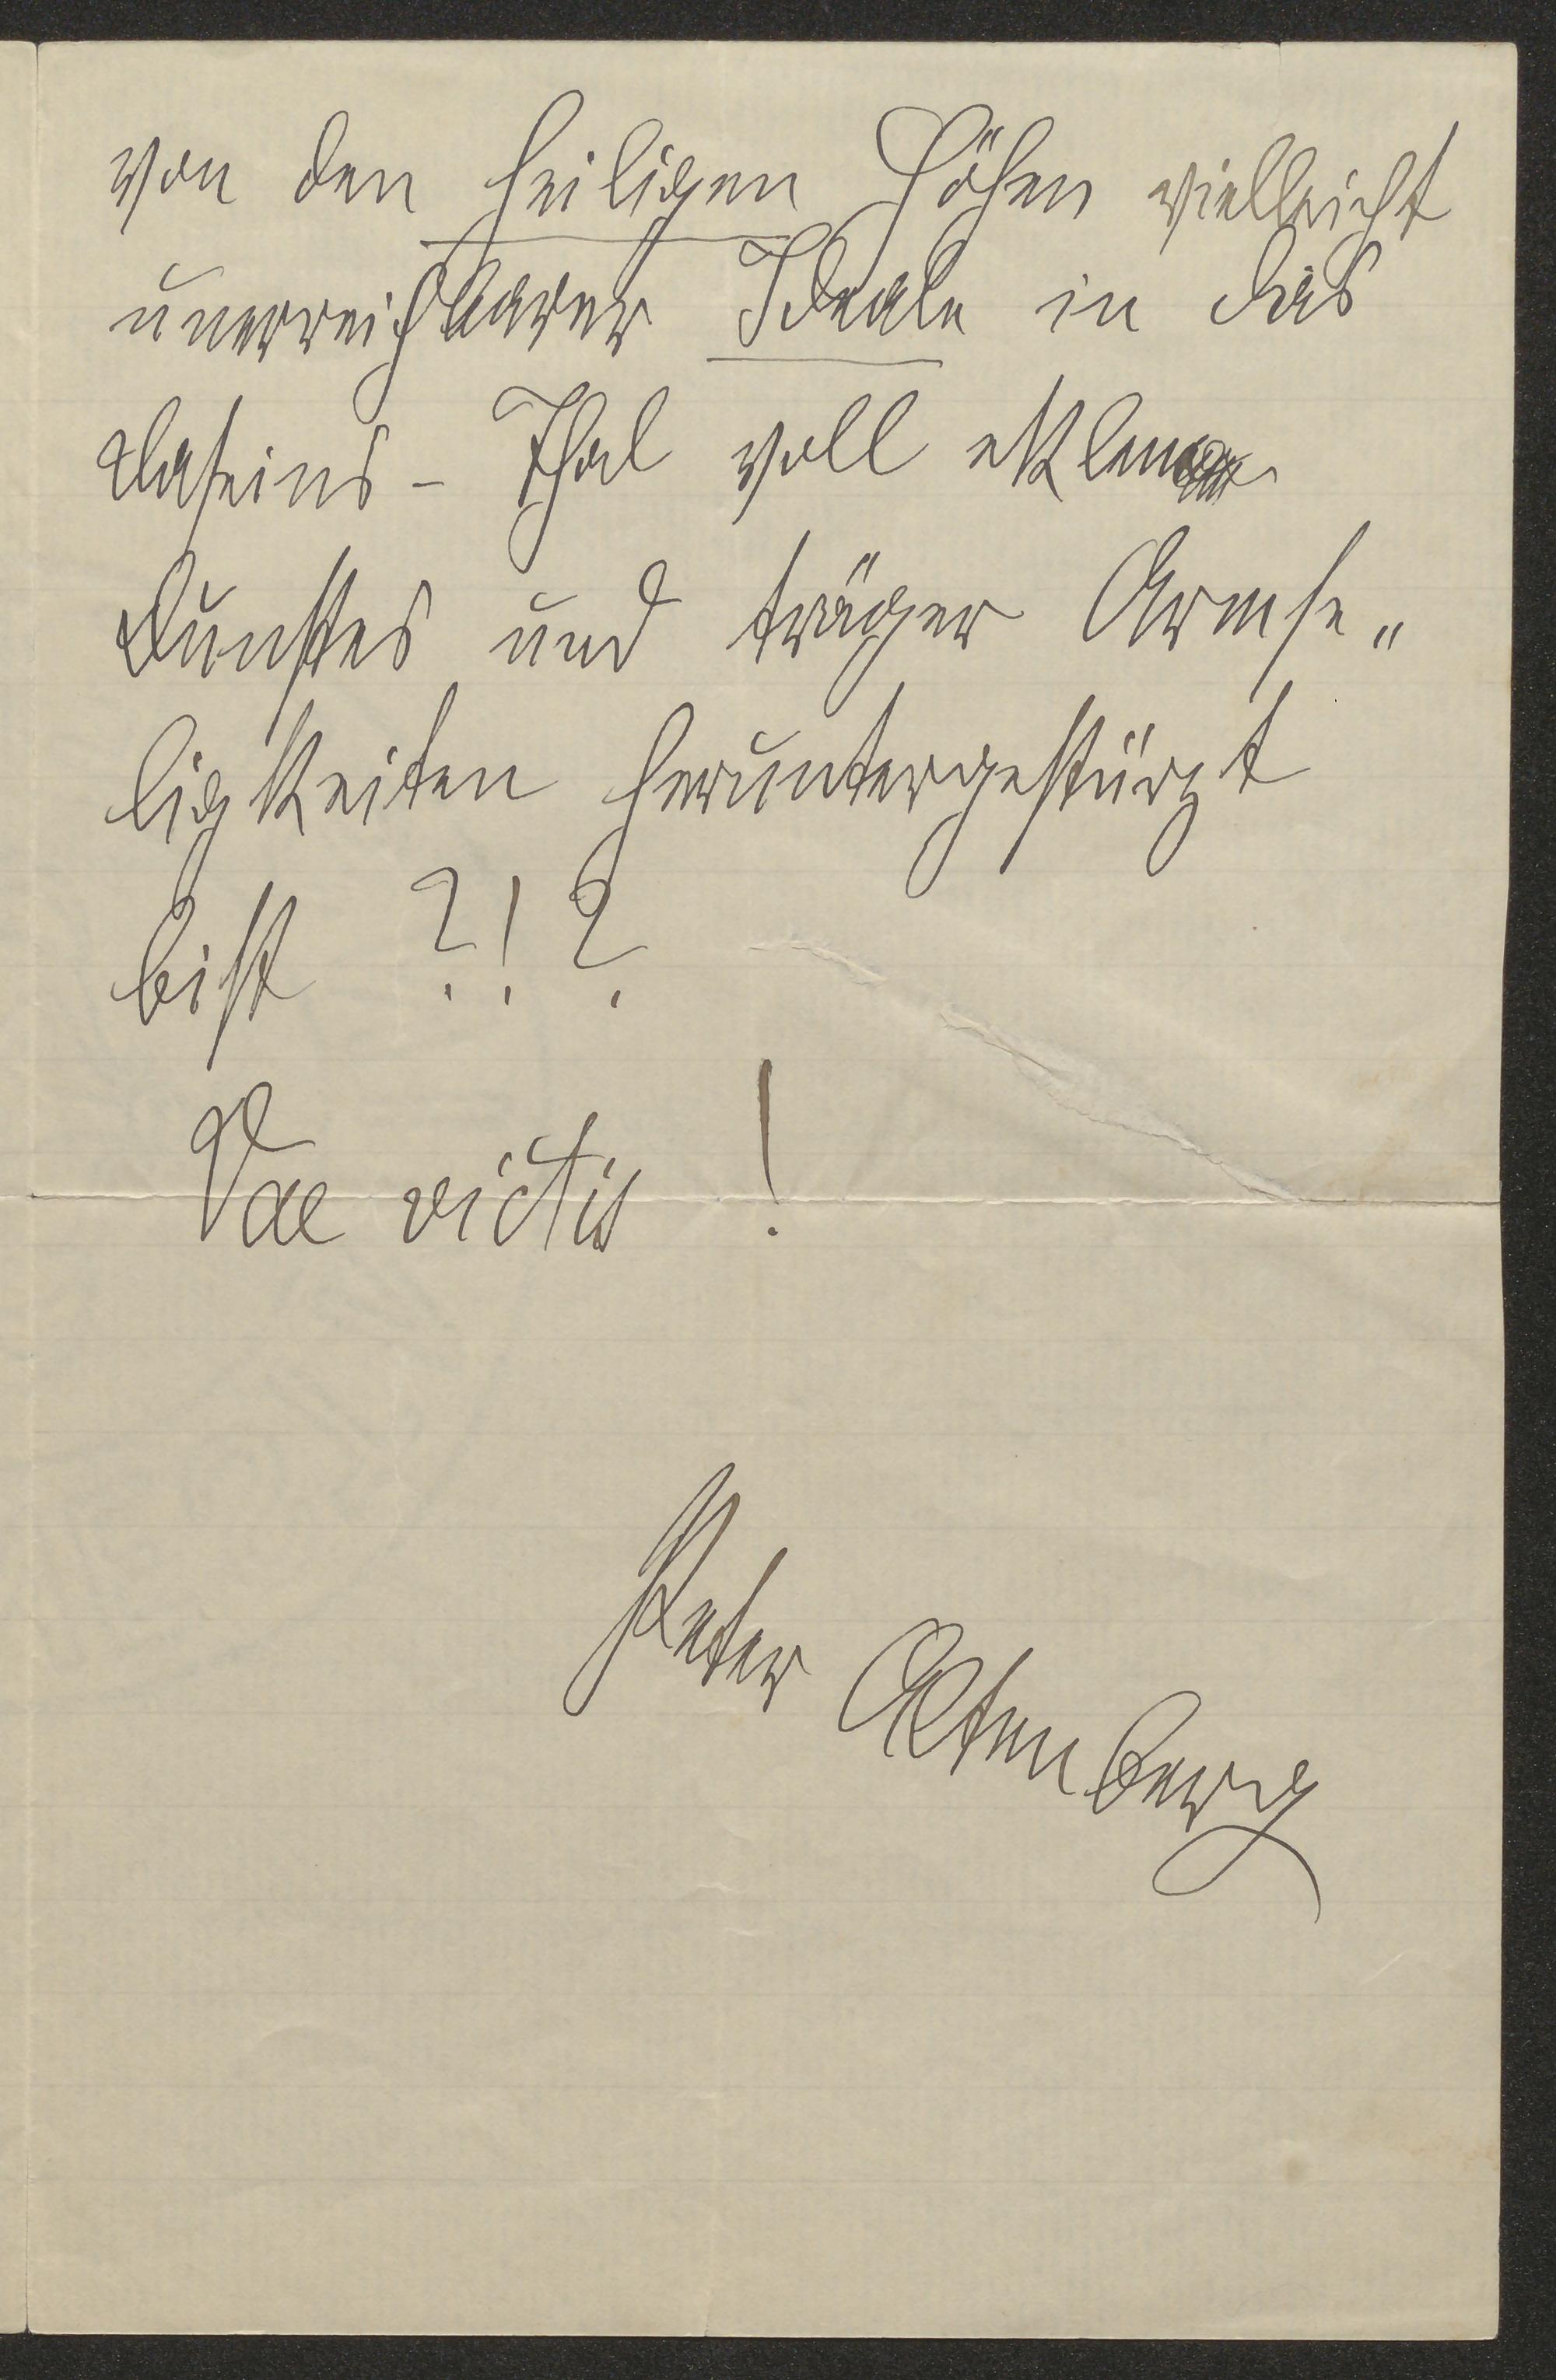 von den heiligen Höhen vielleicht
unerreichbarer Ideale in das
Daseins-Thal voll eklen
Dunstes und träger Armse„
ligkeiten heruntergestürzt
bist ?!?
Vae victis !
Peter Altenberg